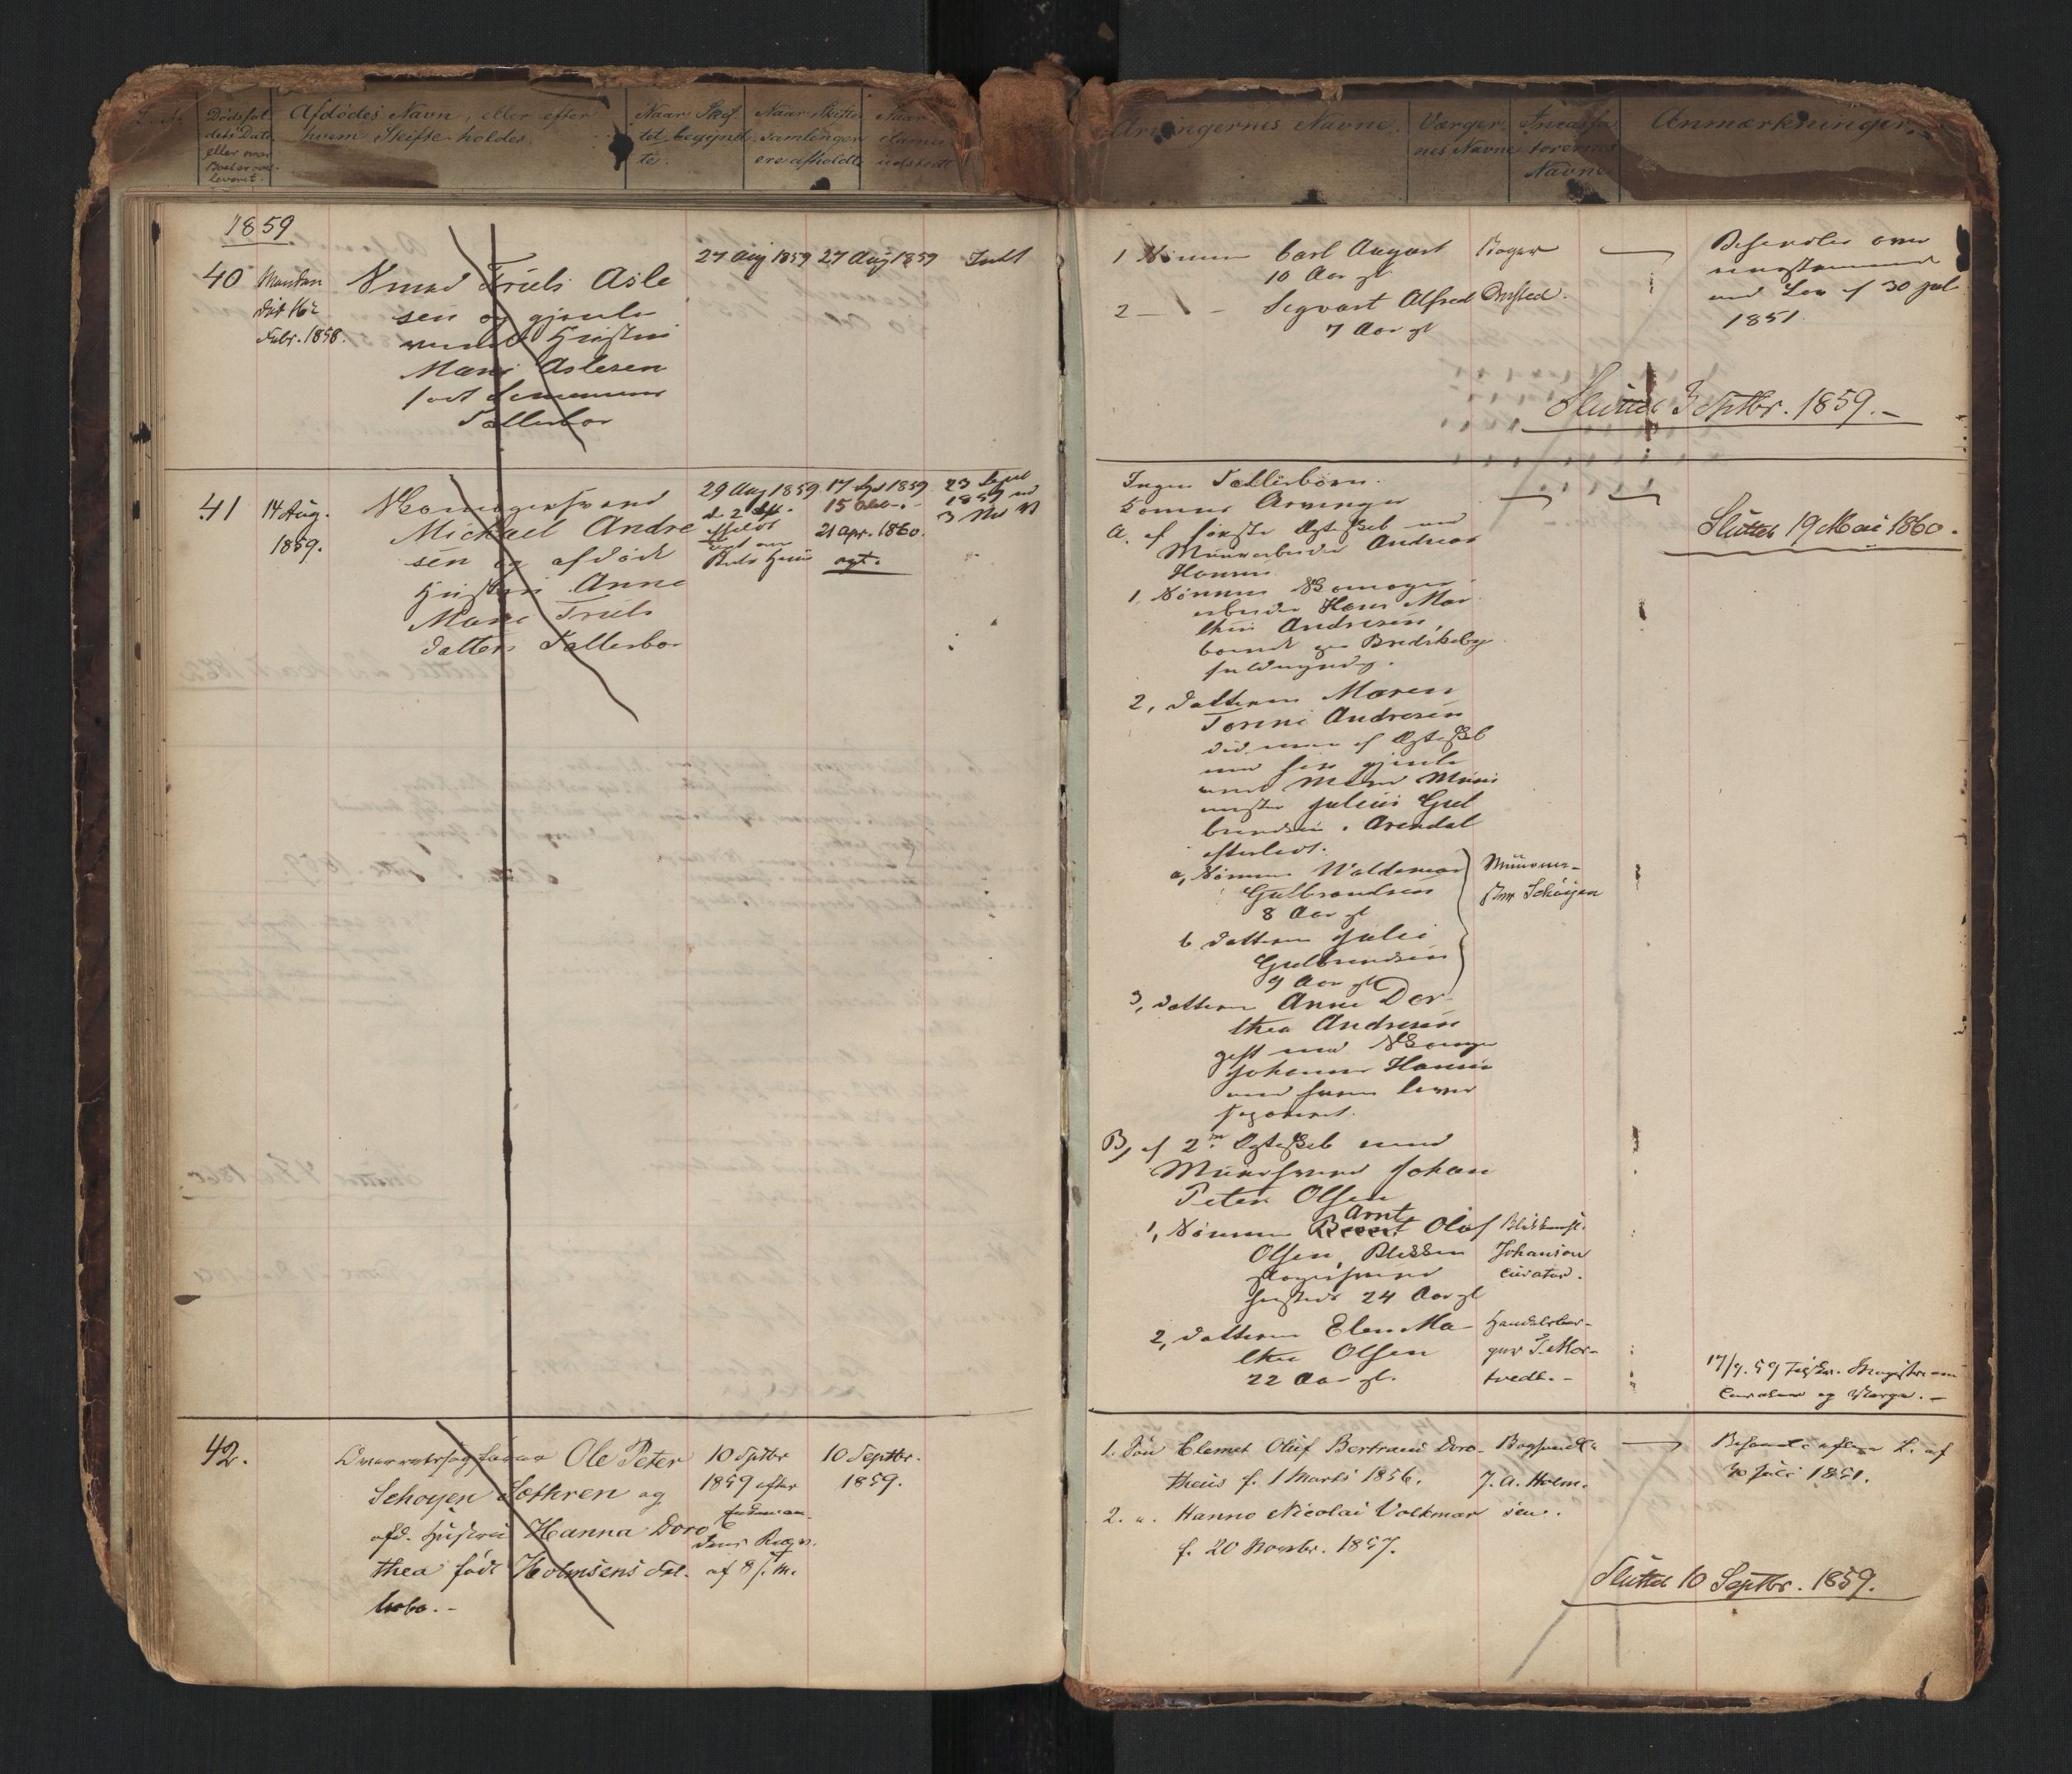 Dødsfal-
dets Dato
eller naar
Boet er over-
leveret.
Afdødes Navn, eller efter
hvem Skifte holdes.
Naar Skif-
tet begynd-
te.
Naar Skifte-
samlinger
ere afholdte
Naar
udstedt
Arvingernes Navne.
Værger-
nes Navne
Incassa-
torernes
Navne
Anmærkninger.
1859
40
Manden
død 16
Febr. 1858.
Smed Truls Asle
sen og gjenle
vende Hustru
Maren Aslesen
født
Tallerbor
27 Aug 1859
27 Aug 1859
Indk
1 Sønnen Carl August
10 Aar gl
2 — Sigvart Alfred
7 Aar gl
Boger
Onsted.
Behandles over
med Lov af 30 Juli
1851.
Sluttet 3 Septbr. 1859.-
41
14 Aug.
1859.
Skomagersvend
Michael Andre
sen og afdøde
Hustru Anne
Marie Truls
datter Tallerbor
29 Aug 1859
17 Sept 1859
15 Octo -.-
21 Apr. 1860.
agt.
23 Sept
1859
Ingen Fællesbørn.
Konens Arvinger
A. af første Ægteskab med
Muurarbeider Andreas
Hansen
1, Sønnen Skomager-
arbeider Hans Mar
thin Andresen,
boende paa Bredskeby
fuldmyndig.
2, Datteren Maren
Torine Andresen
død men af Ægteskab
med sin gjenle
vende Mand Muur
mester Julius Gul
brandsen i Arendal
efterladt:
a, Sønnen Waldemar
Gulbrandsen
8 Aar gl
b Datteren Julie
Gulbrandsen
9 Aar gl
Muurmes-
Schøyen
3, Datteren Anne Dor-
thea Andresen
gift med Skomager
Johannes Hansen
med hvem lever
separeret.
B, af 2det Ægteskab med
Muursvend Johan
Peter Olsen
Arnt
1, Sønnen Bernt Olaf
Olsen, Blikken
slagersvend
24 Aar gl
Johanson
Curator.
2, Datteren Elen Ma-
thea Olsen
22 Aar gl.
Handelsbor-
ger T. Mor-
tvedt.-
Sluttet 19 Mai 1860.
17/9. 59 Tilskr. Magistr. om
Curator og Værge.-
42.
Overretssagfører Ole Peter
Schoyen Sethren og
afd. Hustru Hanna Doro
thea født Holmsens Fæl-
lesbo.-
10 Septbr
1859 efter
af 8 s. M.
10 Septbr.
1859.
1. Søn Clemet Oluf Bertrand Doro-
theus f. 1 Marts 1856.
2. " Hanno Nicolai Volkmar
f. 20 Novbr. 1857.
J. A. Holm-
sen.
Behandles efter L. af
30 Juli 1851.
Sluttet 10 Septbr. 1859.